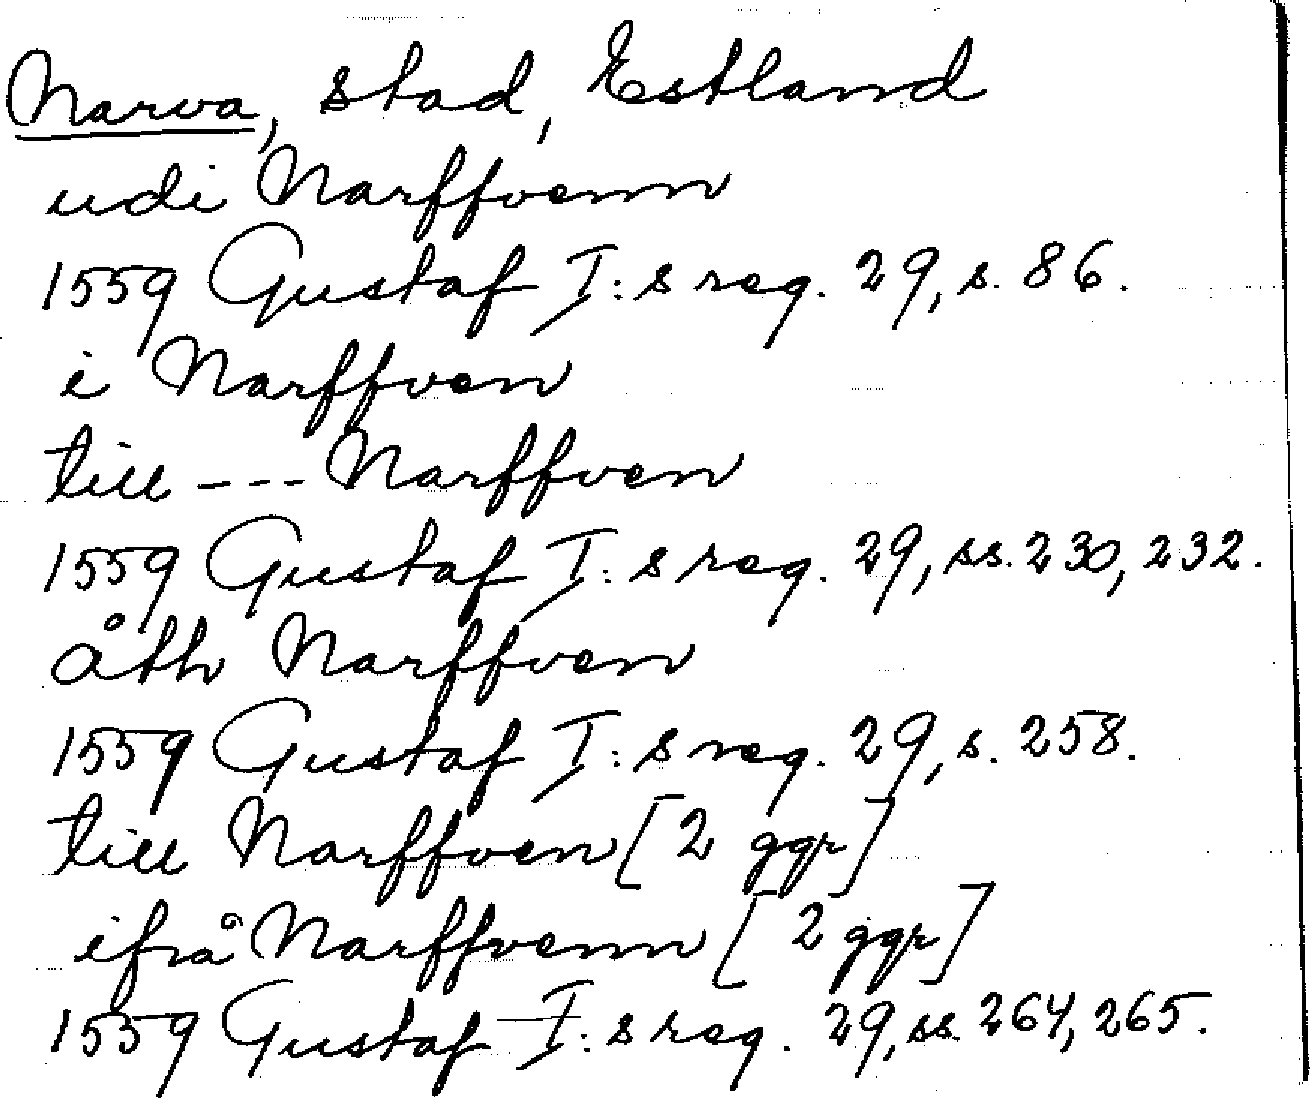 Narva, stad, Estland
udi Narffvenn
1559 Gustaf I:s reg. 29, s. 86.
i Narffven
till --- Narffven
1559 Gustaf I:s reg. 29, ss. 230, 232.
åth Narffven
1559 Gustaf I:s reg. 29, s. 258.
till Narffven [2 ggr]
ifrå Narffvenn [2 ggr]
1559 Gustaf I:s reg. 29, ss. 264, 265.